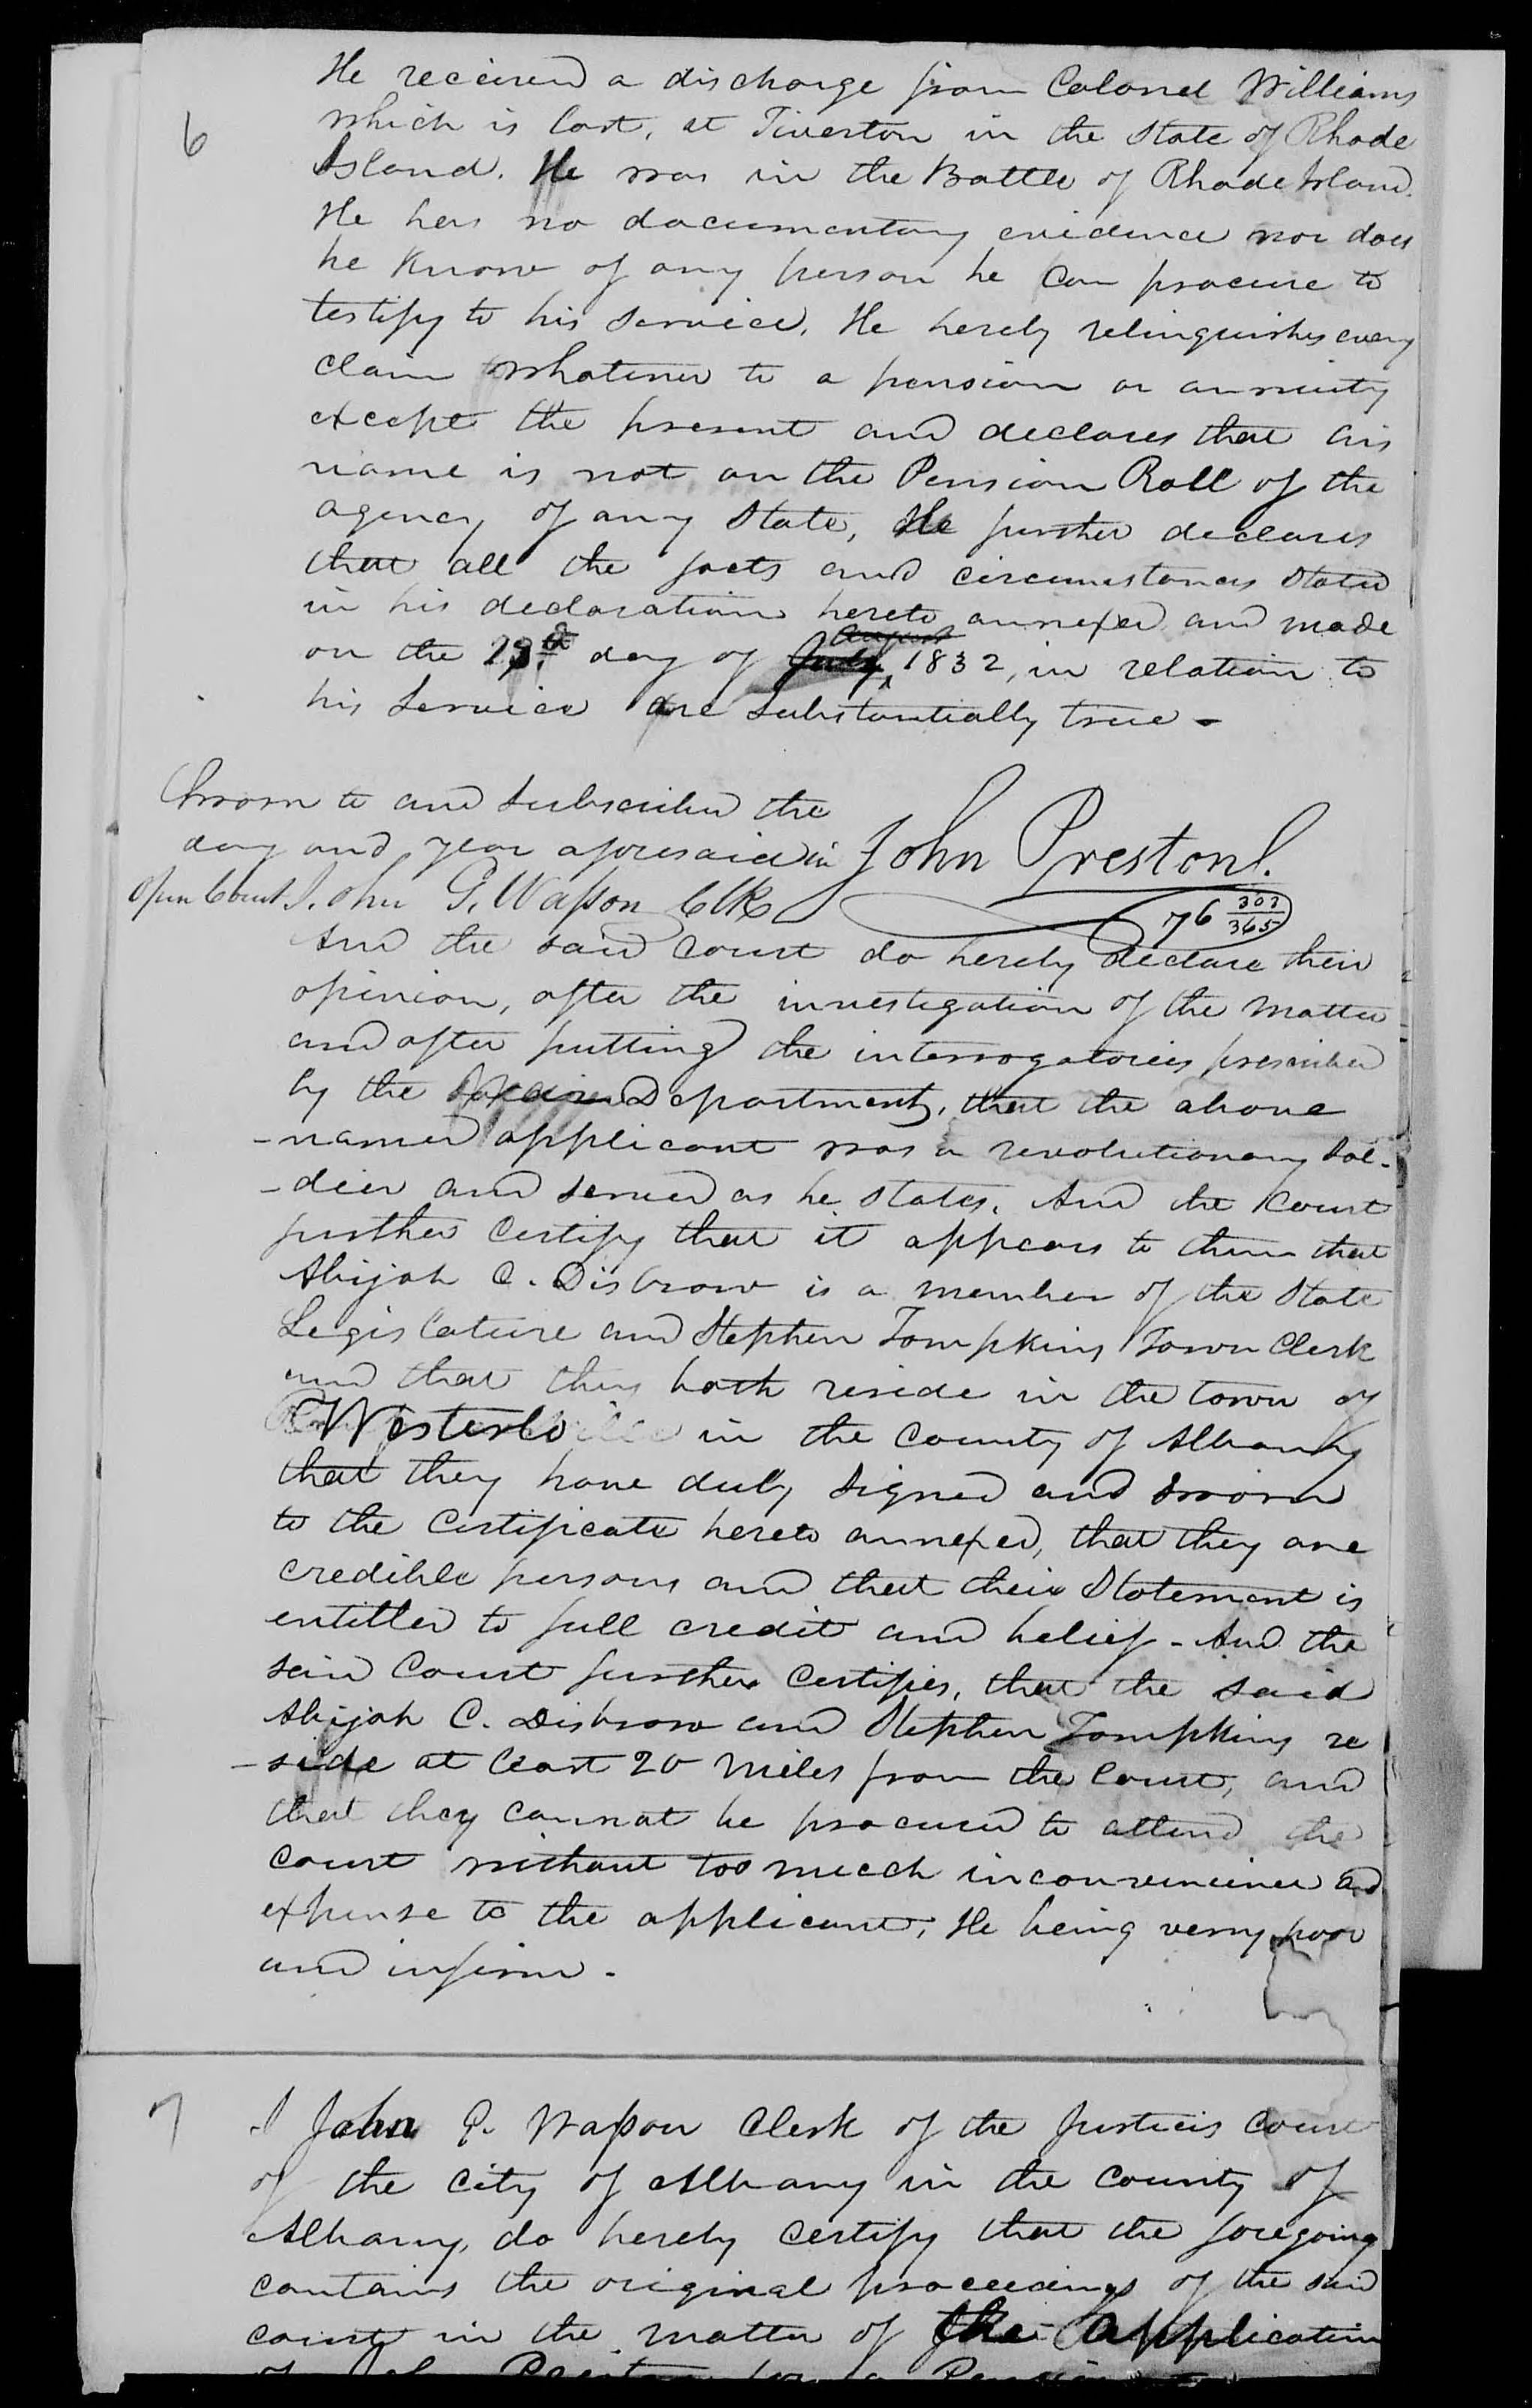 He received a discharge from Colonel Williams
6
which is lost, at Tiverton in the State of Rhode
Island. He was in the Battle of Rhode Island.
He has no documentary evidence nor does
he know of any person he can procure to
testify to his service. He hereby relinquishes every
claim whatever to a pension or annuity
except the present and declares that his
name is not on the Pension Roll of the
agency of any State, He further declares
that all the facts and circumstances stated
in his declaration hereto annexed and made
August
on the 23d day of July 1832, in relation to
his Service are substantially true -
Sworn to and subscribed the
day and year aforesaid in John Preston
open Court John G. Waſson Clk
76 303/365
And the said Court do hereby declare their
opinion, after the investigation of the matter
and after putting the interrogatories prescribed
by the Department, that the above
-named applicant was a revolutionary sol-
-dier and served as he states. And the Court
further certify that it appears to them that
Abijah C. Disbrow is a member of the State
Legislature and Stephen Tompkins Town Clerk
and that they both reside in the town of
Westerlo in the County of Albany
that they have duly signed and sworn
to the certificate hereto annexed, that they are
credible persons and that their Statement is
entitled to full credit and belief - And the
said Court further Certifies, that the said
Abijah C. Disbrow and Stephen Tompkins re
-side at least 20 miles from the Court, and
that they cannot be procured to attend the
court without too much inconvenience and
expense to the applicant; He being verry poor
and infirm -
7
I John G. Waſson Clerk of the Justices Court
of the City of Albany in the County of
Albany, do hereby certify that the foregoing
contains the original proceedings of the said
court in the matter of the application
of John Preston for a Pension